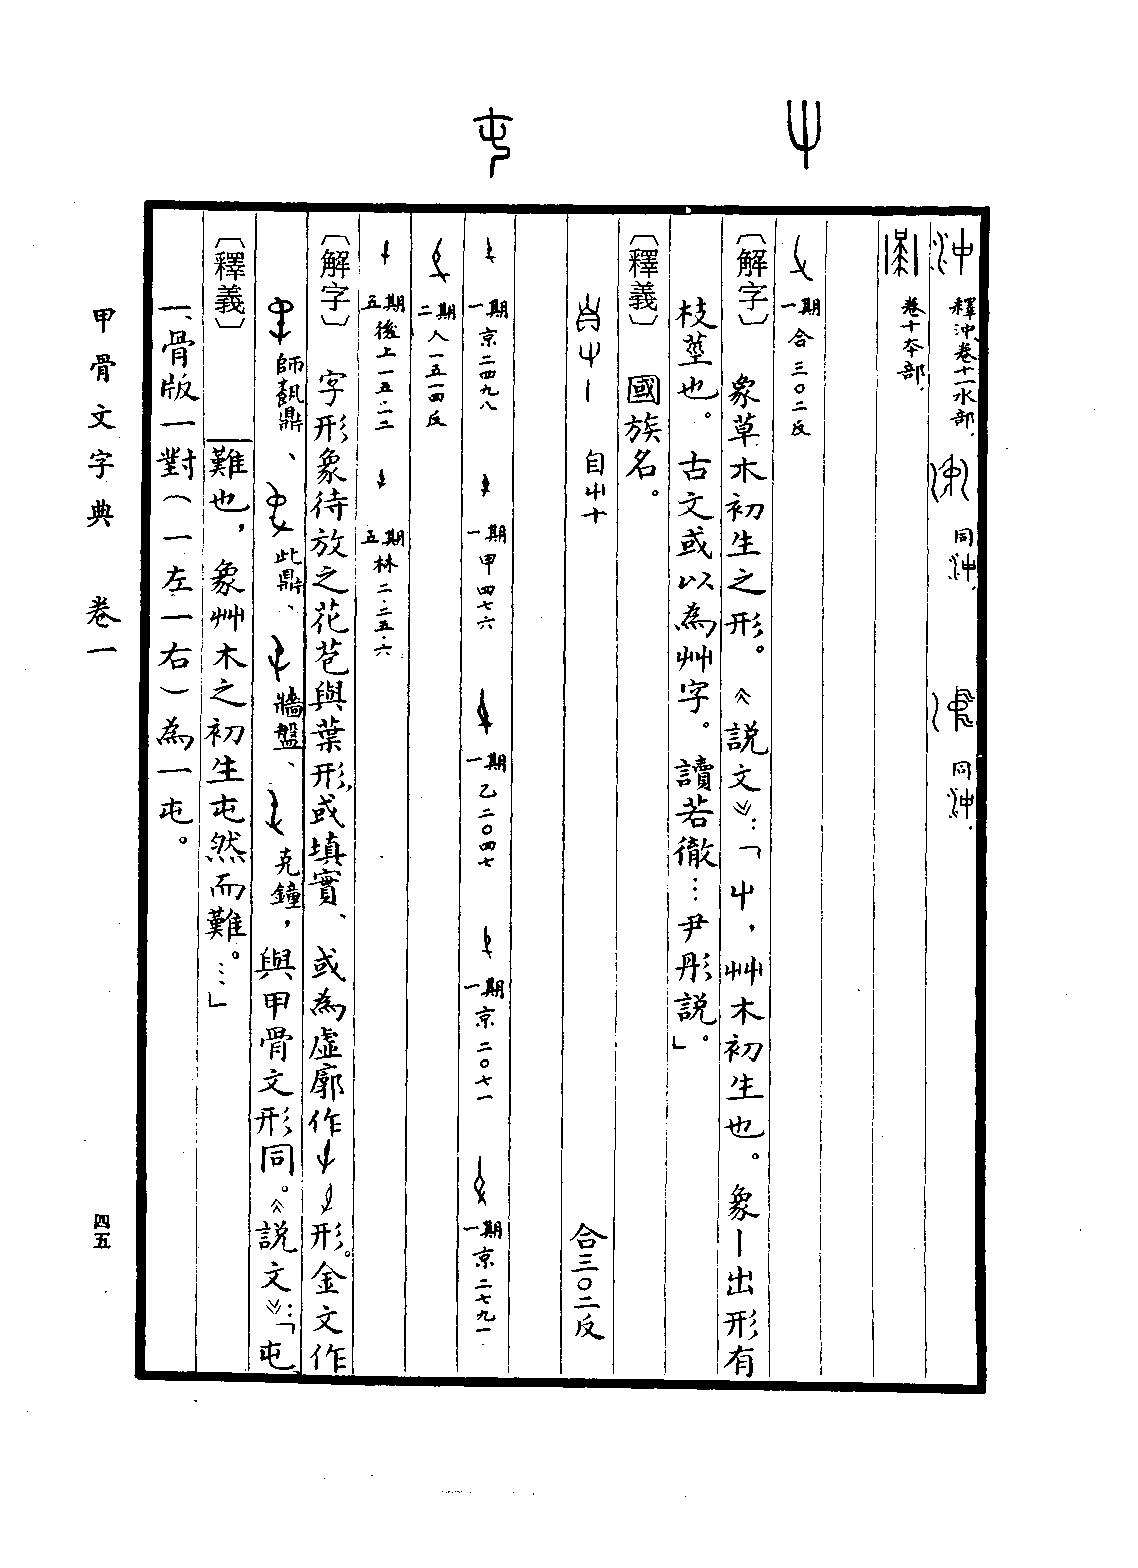 屮
屯
釋沖卷十一水部、 同沖、 同沖、
卷十夲部、
一期 合三〇二反
〔解字〕 象草木初生之形。《説文》：「屮，艸木初生也。象丨出形有
枝莖也。古文或以為艸字。讀若徹…尹彤説。」
〔釋義〕 國族名。
屮 自屮十 合三〇二反
一期 京二四九八 一期 甲四七六 一期 乙二〇四七 一期 京二〇七一 一期 京二七九一
二期 人一五一四反
五期 後上一五·一二 五期 林二·二五·六
〔解字〕 字形象待放之花苞與葉形，或填實、或為虛廓作 形。金文作
師𩛥鼎、 此鼎、 牆盤、 克鐘，與甲骨文形同。《説文》：「屯，
難也，象艸木之初生屯然而難。…」
〔釋義〕
一、骨版一對（一左一右）為一屯。
甲骨文字典 卷一
四五